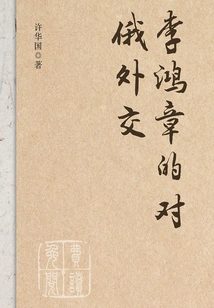 李鸿章的对
俄外交
许华国◎著